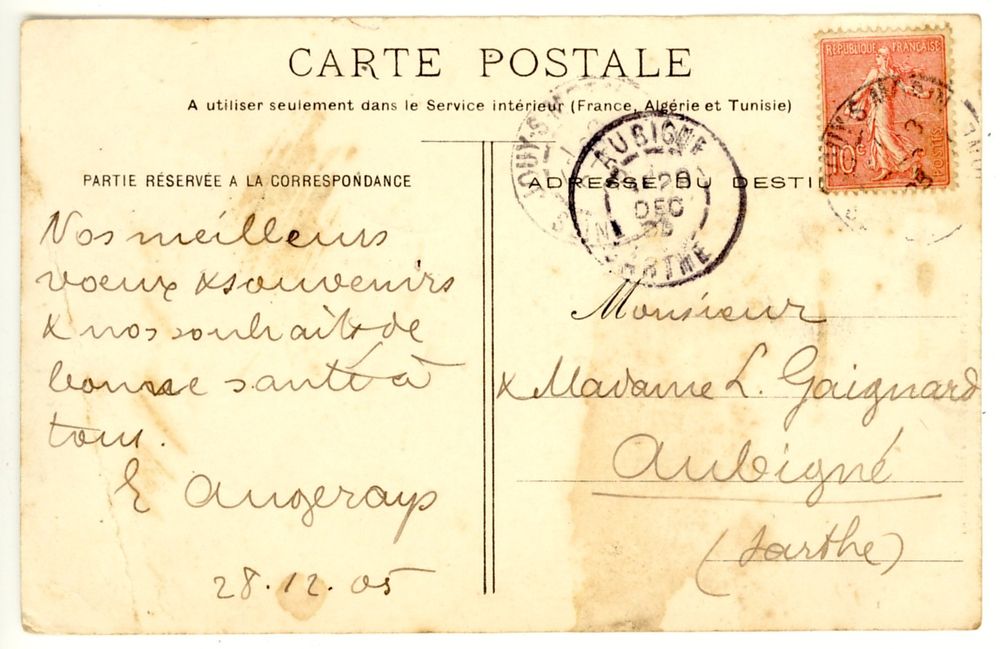 CARTE POSTALE
A utiliser seulement dans le Service intérieur (France, Algérie et Tunisie)
PARTIE RÉSERVÉE A LA CORRESPONDANCE
Nos meilleurs
voeux & souvenirs
& nos souhaits de
bonne santé à
tous.
E Angerays
28.12.05
RÉPUBLIQUE FRANÇAISE
POSTES
10c
AUBIGNE
28
DEC
05
SARTHE
ADRESSE DU DESTI
Monsieur
& Madame L. Gaignard
Aubigné
(Sarthe)